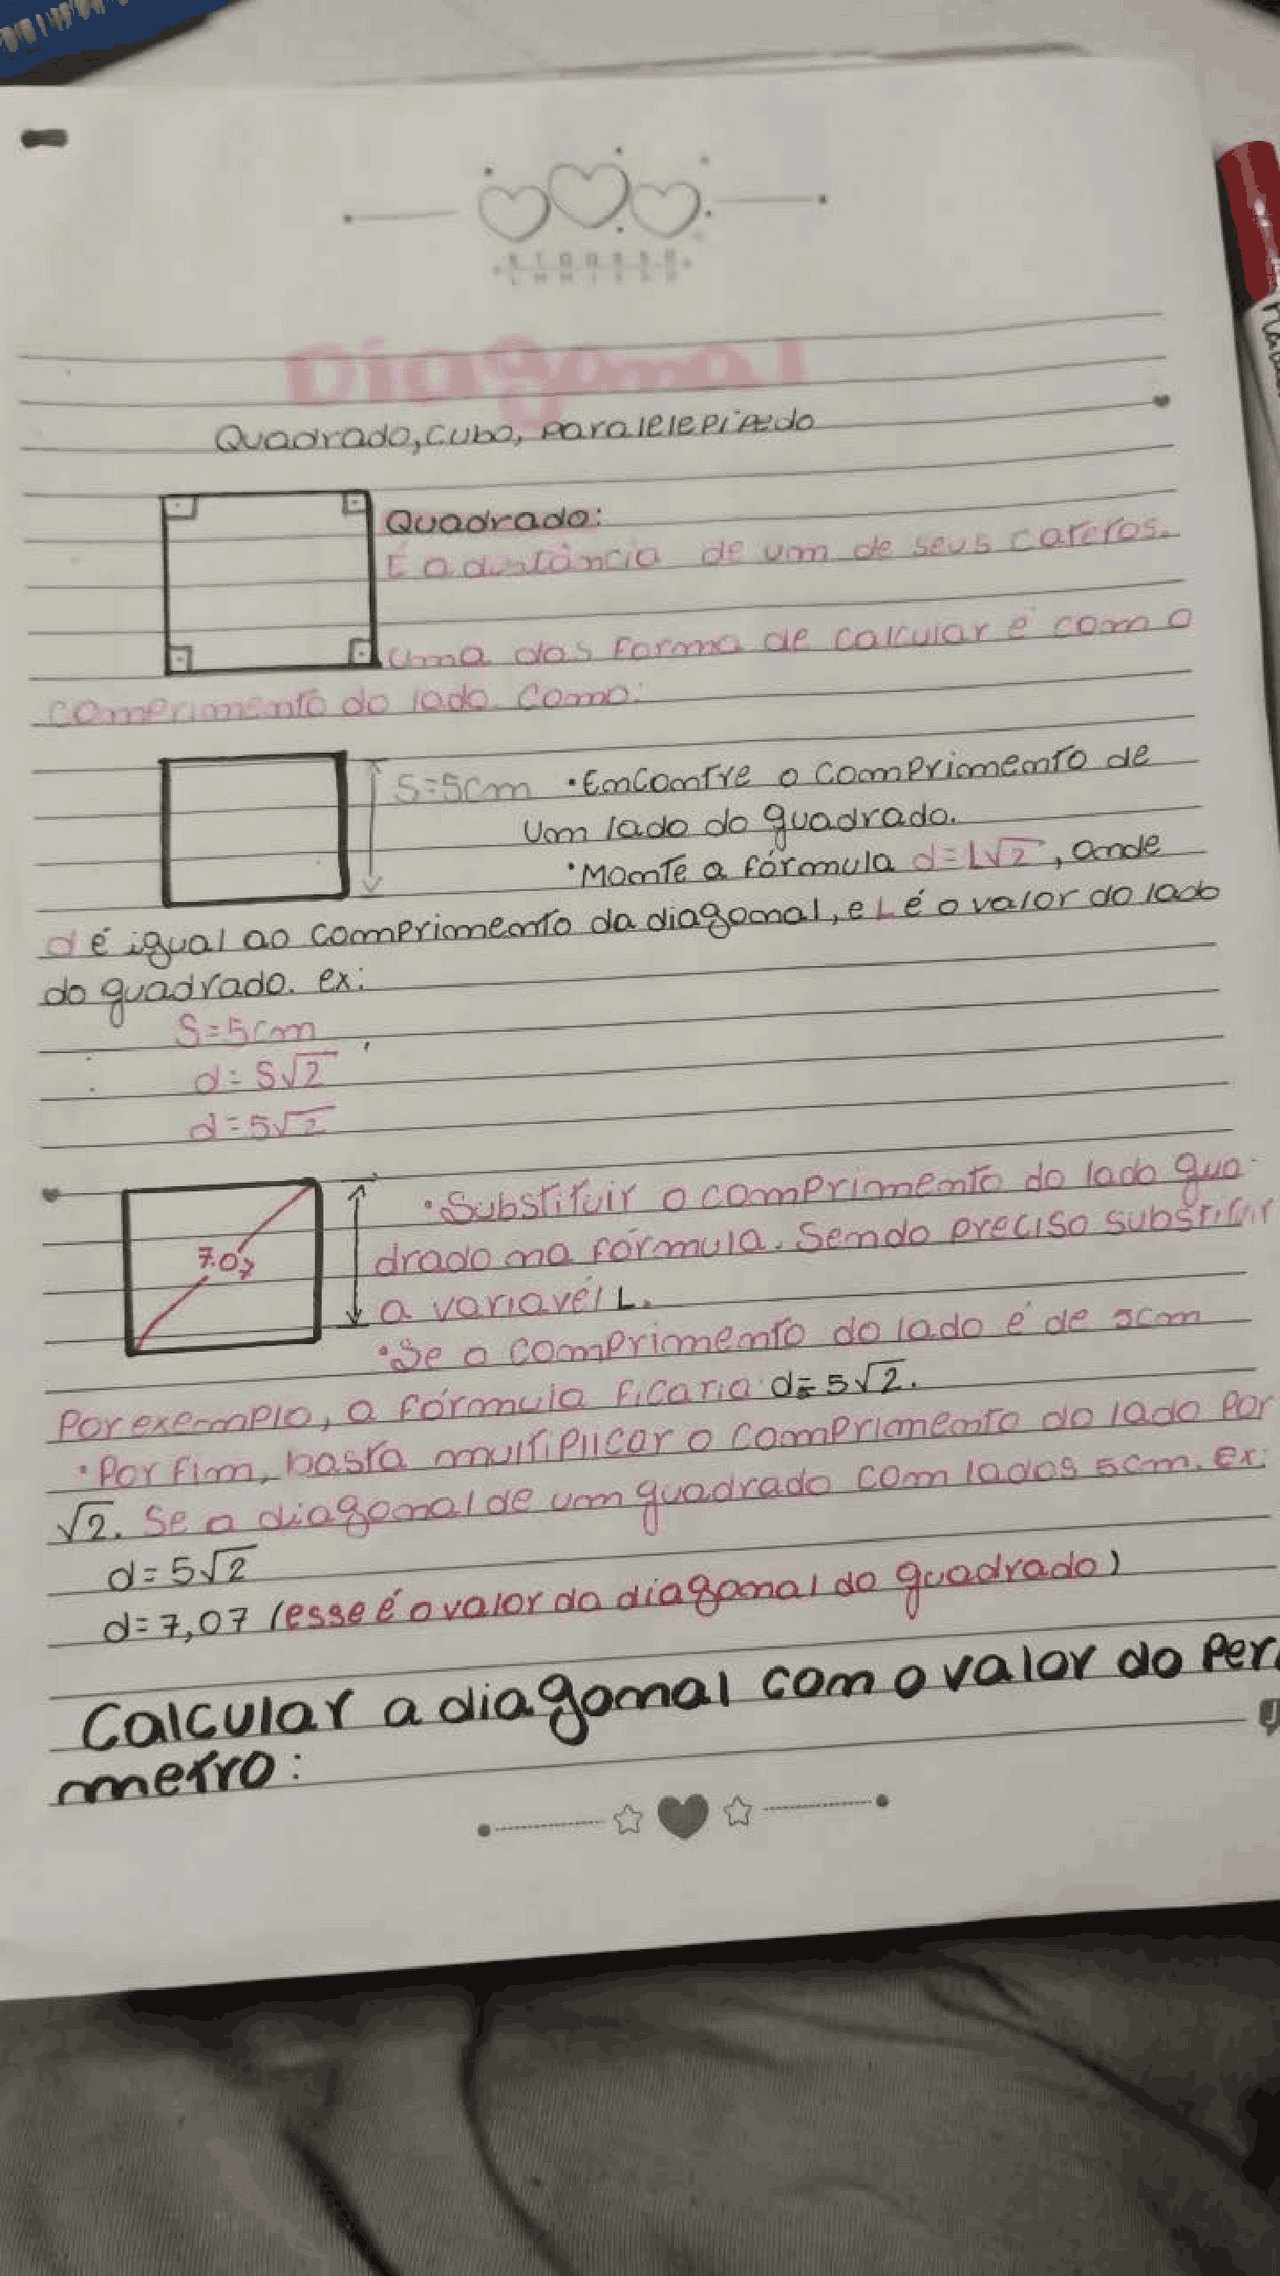 Diagonal
Quadrado, cubo, Paralelepipedo
Quadrado:
É a distância de um de seus catetos.
uma das forma de calcular é com o
comprimento do lado como:
S=5cm •Encontre o comprimento de
um lado do quadrado.
•Monte a fórmula d=L√2, onde
d é igual ao comprimento da diagonal, e L é o valor do lado
do quadrado. ex:
S=5cm
d=S√2
d=5√2
•Substituir o comprimento do lado qua-
7.07
drado na fórmula. Sendo preciso substituir
a variavél L.
•Se o comprimento do lado é de 5cm
Por exemplo, a fórmula ficaria d=5√2.
•Por fim, basta multiplicar o comprimento do lado por
√2. Se a diagonal de um quadrado com lados 5cm. Ex:
d=5√2
d=7,07 (esse é o valor da diagonal do quadrado)
Calcular a diagonal com o valor do Perí
metro: